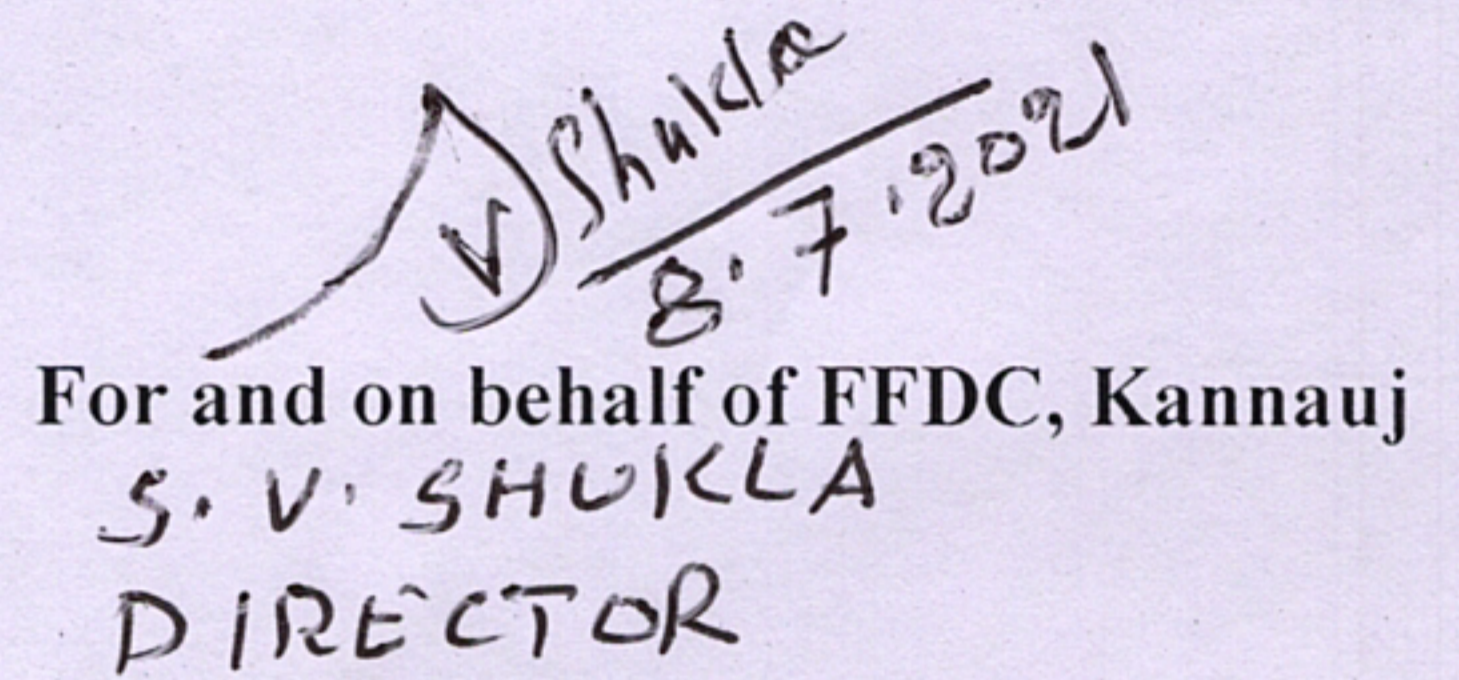 SVShukla
8.7.2021
For and on behalf of FFDC, Kannauj
S. V. SHUKLA
DIRECTOR